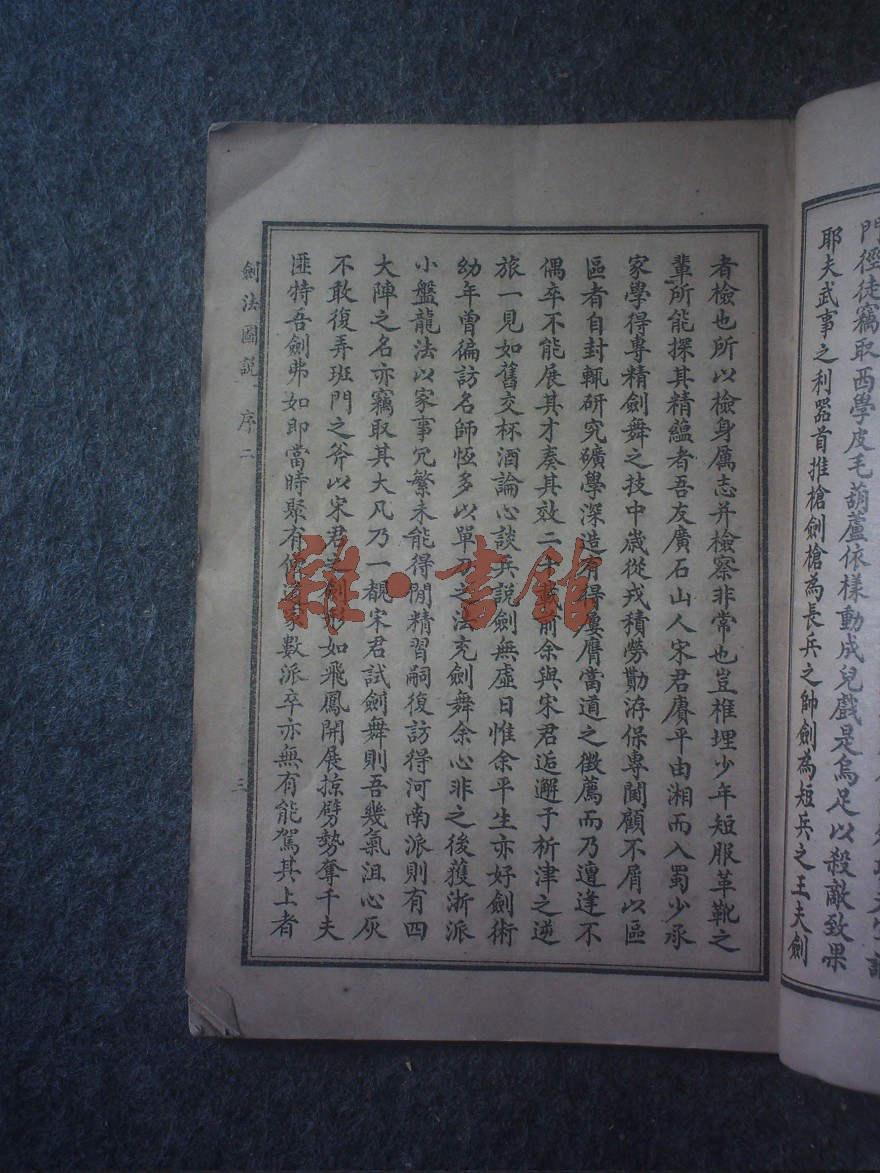 門徑徒竊取西學皮毛葫蘆依樣動成兒戲是烏足以殺敵致果
耶夫武事之利器首推槍劍槍為長兵之帥劍為短兵之王夫劍
者檢也所以檢身厲志并檢察非常也豈椎埋少年短服革靴之
輩所能探其精蘊者吾友廣石山人宋君賡平由湘而入蜀少承
家學得專精劍舞之技中歲從戎積勞勩洊保專閫顧不屑以區
區者自封輒研究礦學深造有得屢膺當道之徵薦而乃遭逢不
偶卒不能展其才奏其效二十前余與宋君逅邂于析津之逆
旅一見如舊交杯酒論心談兵説劍無虛日惟余平生亦好劍術
幼年曾徧訪名師恆多以單刀之法充劍舞余心非之後獲浙派
小盤龍法以家事冗繁未能得閒精習嗣復訪得河南派則有四
大陣之名亦竊取其大凡乃一覩宋君試劍舞則吾幾氣沮心灰
不敢復弄班門之斧以宋君之劍如飛鳳開展掠劈勢奪千夫
匪特吾劍弗如即當時聚有家數派卒亦無有能駕其上者
劍法圖說 序二
三
雜·書館